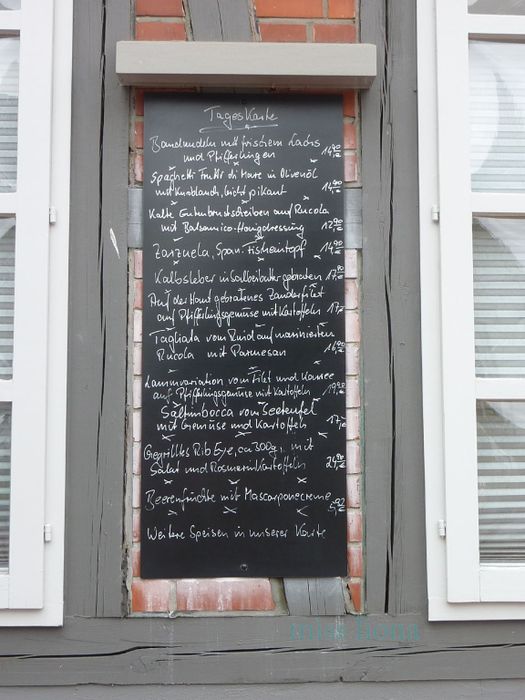 Tageskarte
Bandnudeln mit frischem Lachs
und Pfifferlingen 14,90€
Spaghetti Frutti di Mare in Olivenöl
mit Knoblauch, leicht pikant 14,90€
Kalte Entenbrustscheiben auf Rucola
mit Balsamico-Honigdressing 12,90€
Zarzuela, Span. Fischeintopf 14,90€
Kalbsleber in Salbeibutter gebraten 17,90
Auf der Haut gebratenes Zanderfilet
auf Pfifferlingsgemüse mit Kartoffeln 17,-€
Tagliata vom Rind auf marinierten
Rucola mit Parmesan 16,90€
Lammvariation vom Filet und Karree
auf Pfifferlingsgemüse mit Kartoffeln 19,90€
Saltimbocca vom Seeteufel
mit Gemüse und Kartoffeln 17,50€
Gegrilltes Rib Eye, ca 300g, mit
Salat und Rosmarinkartoffeln 24,90€
Beerenfrüchte mit Mascarponecreme
5,90€
Weitere Speisen in unserer Karte
miss fiona